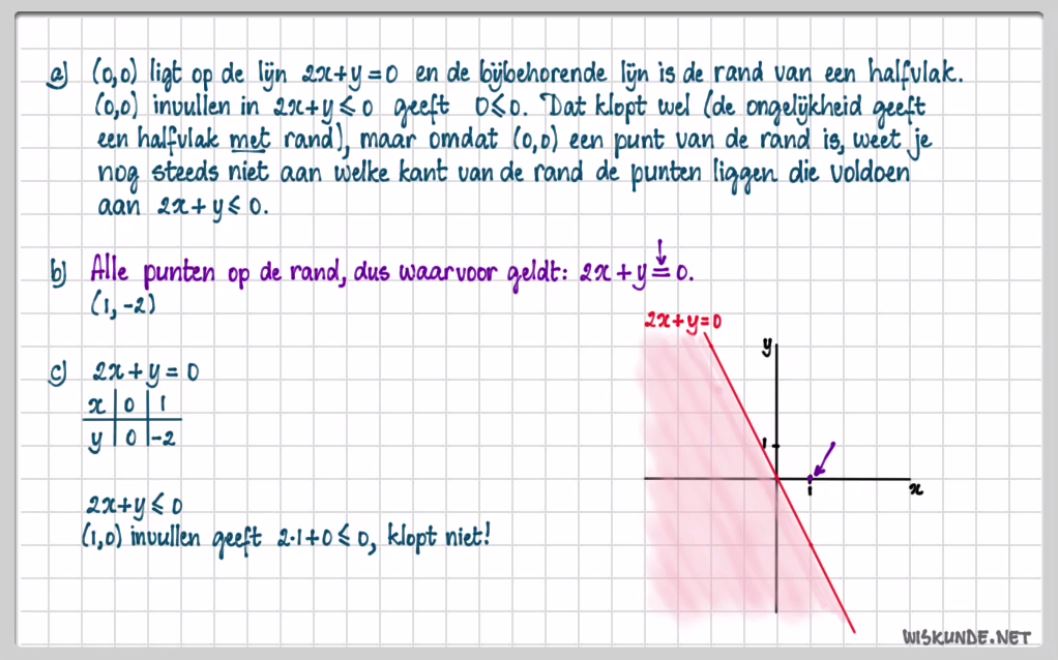 a) (0,0) ligt op de lijn 2x+y=0 en de bijbehorende lijn is de rand van een halfvlak.
(0,0) invullen in 2x+y⩽0 geeft 0⩽0. Dat klopt wel (de ongelijkheid geeft
een halfvlak met rand), maar omdat (0,0) een punt van de rand is, weet je
nog steeds niet aan welke kant van de rand de punten liggen die voldoen
aan 2x+y⩽0.
b) Alle punten op de rand, dus waarvoor geldt: 2x+y=0.
(1,-2)
2x+y=0
y
c) 2x+y=0
x | 0 | 1
y | 0 | -2
1
1
x
2x+y⩽0
(1,0) invullen geeft 2·1+0⩽0, klopt niet!
WISKUNDE.NET